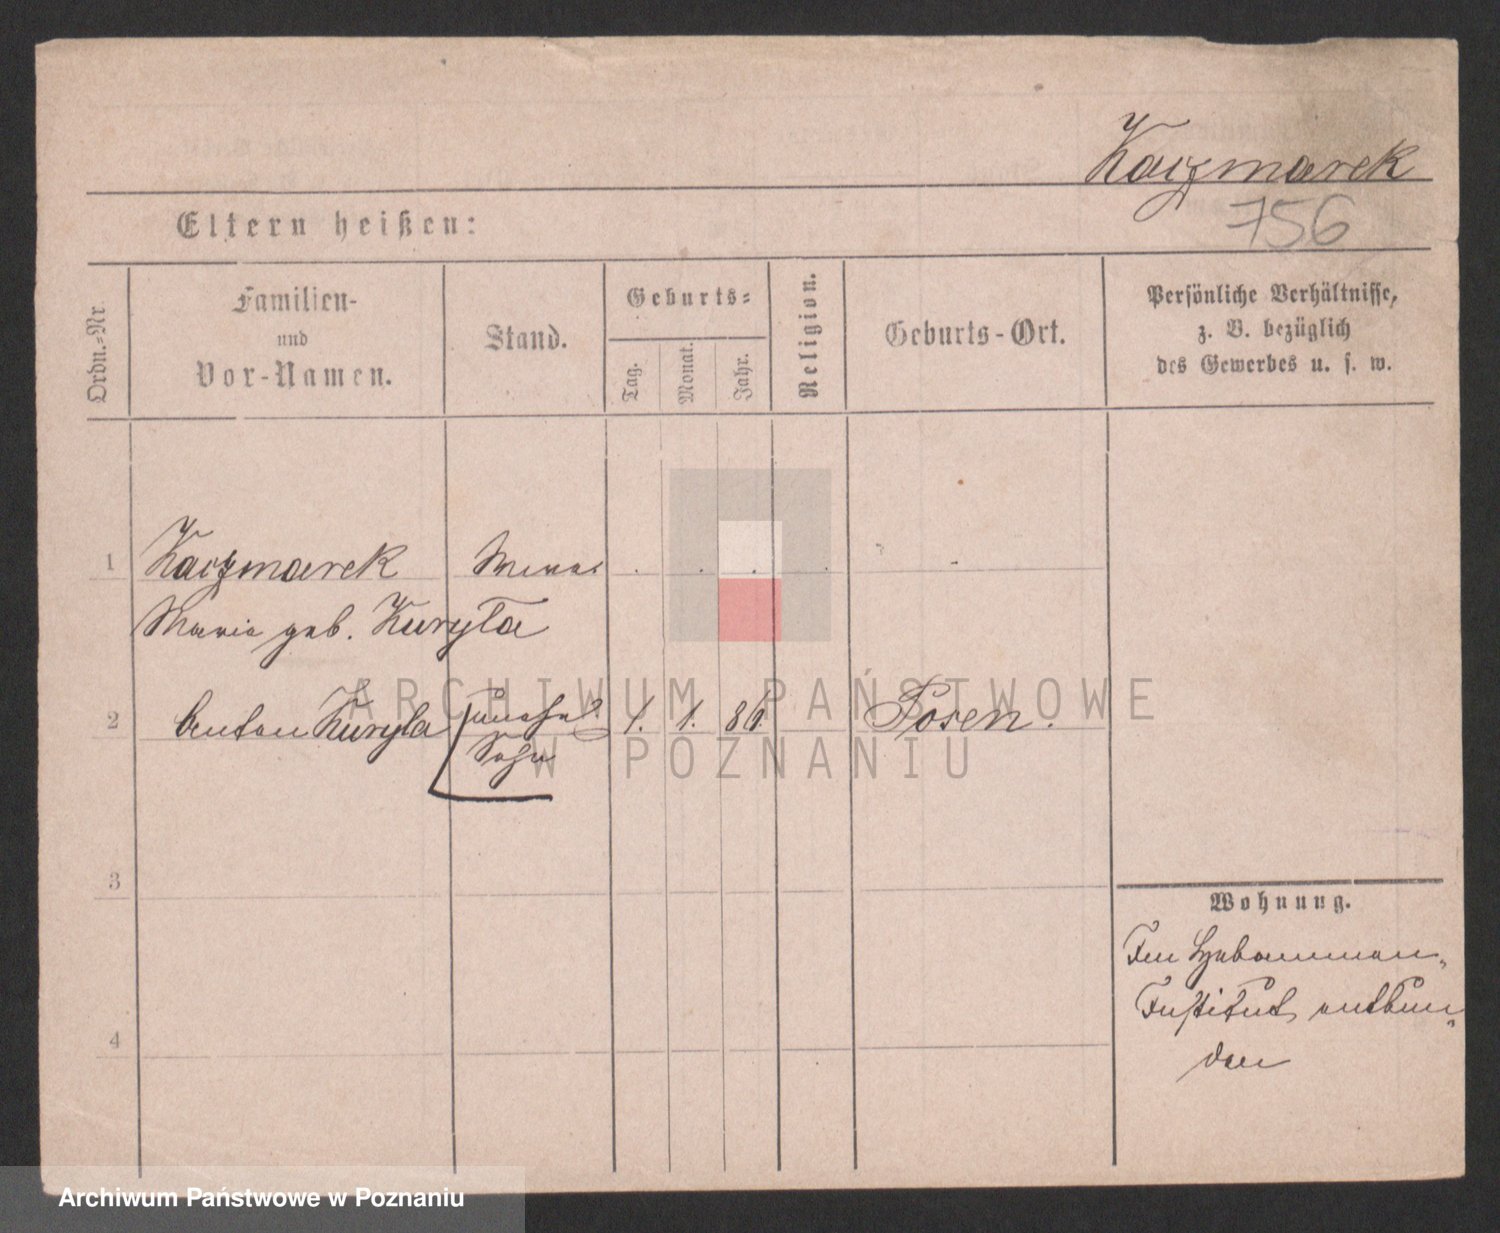 Kaczmarek
756
Eltern heißen:
Ordn.-Nr.
Familien-
und
Vor-Namen.
Stand.
Geburts-
Tag.
Monat.
Jahr.
Religion.
Geburts-Ort.
Persönliche Verhältnisse,
z. B. bezüglich
des Gewerbes u. s. w.
1
Kaczmarek
Maria geb. Kuryła
2
Anton Kuryla
unehel.
Sohn
1. 1. 86.
Posen.
3
4
Wohnung.
Im Hebammen-
Institut entbun-
den
ARCHIWUM PAŃSTWOWE
W POZNANIU
Archiwum Państwowe w Poznaniu